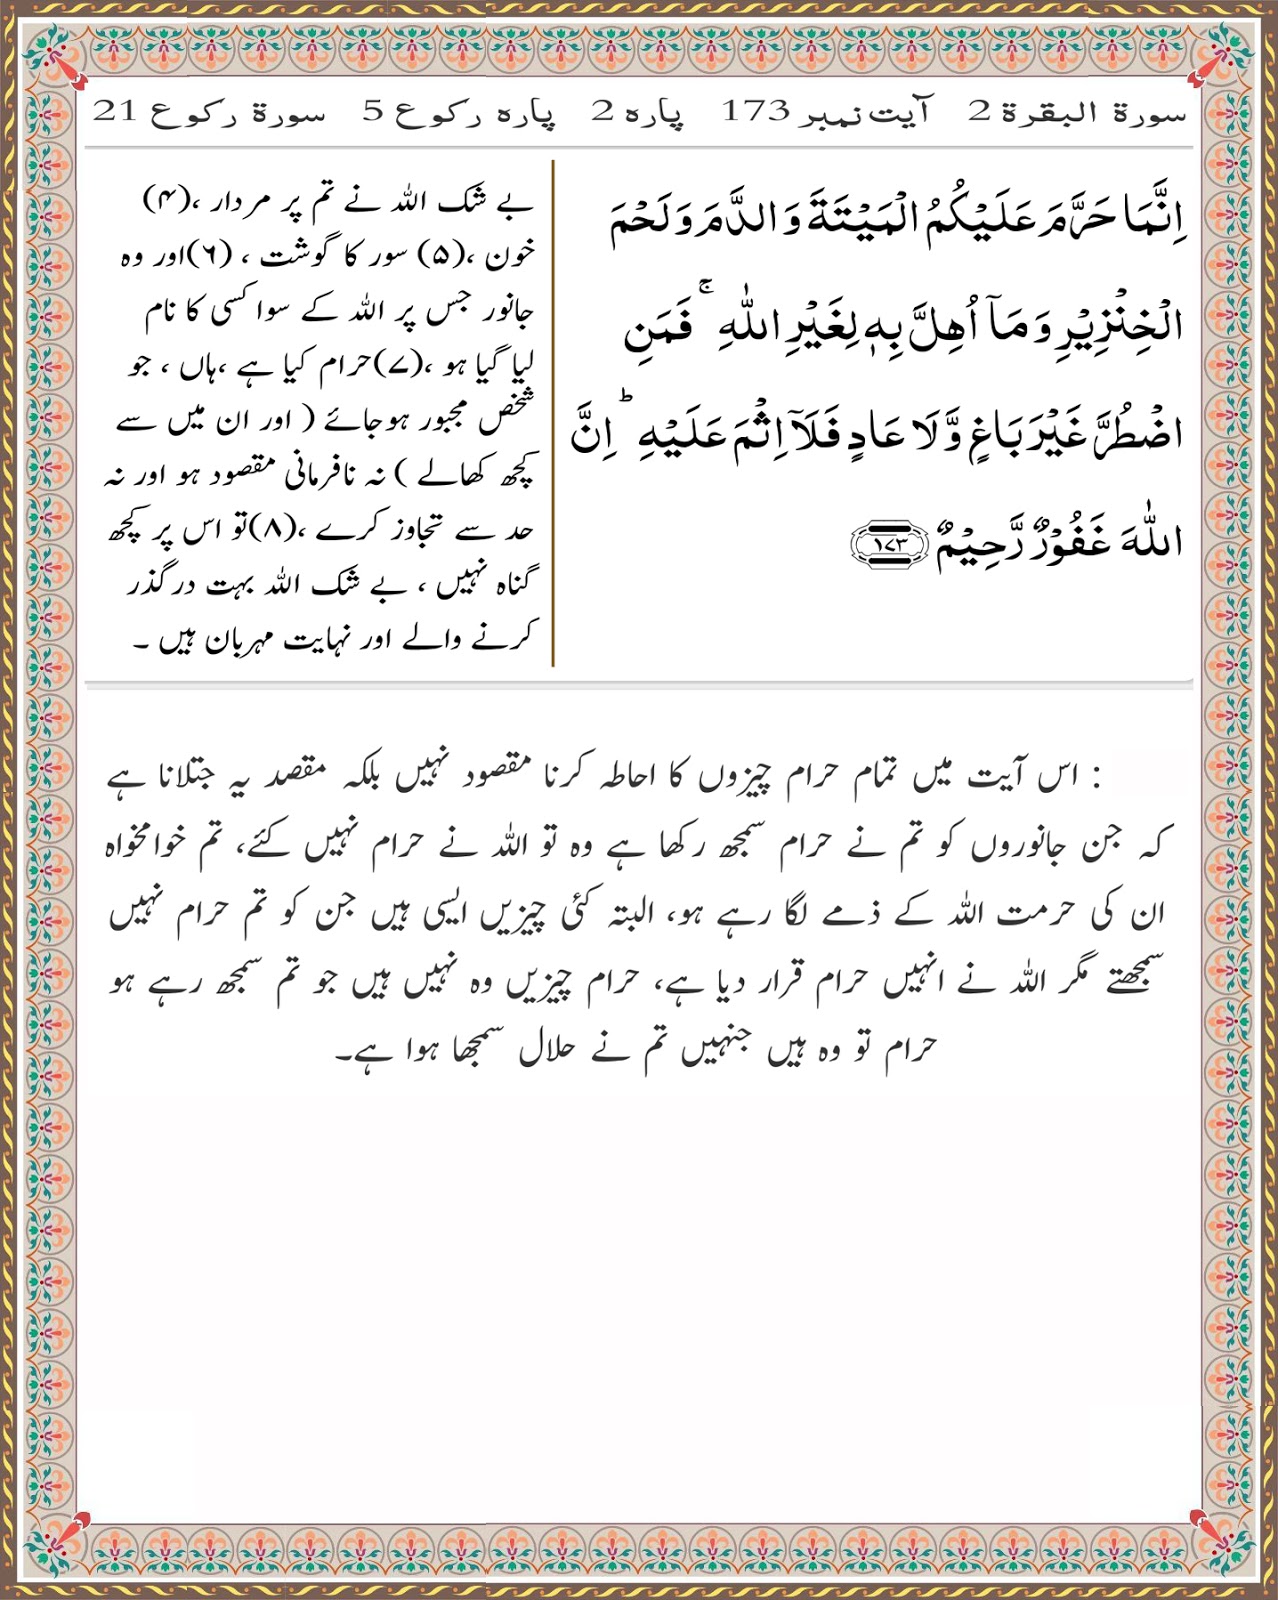 سورة البقرة 2 آیت نمبر 173 پارہ 2 پارہ رکوع 5 سورة رکوع 21
اِنَّمَا حَرَّمَ عَلَيْكُمُ الْمَيْتَةَ وَالدَّمَ وَلَحْمَ
الْخِنْزِيْرِ وَمَآ اُهِلَّ بِهٖ لِغَيْرِ اللّٰهِ ۚ فَمَنِ
اضْطُرَّ غَيْرَ بَاغٍ وَّلَا عَادٍ فَلَآ اِثْمَ عَلَيْهِ ۭ اِنَّ
اللّٰهَ غَفُوْرٌ رَّحِيْمٌ ١٧٣
بے شک اللہ نے تم پر مردار ،(۴)
خون ،(۵) سور کا گوشت ، (۶)اور وہ
جانور جس پر اللہ کے سوا کسی کا نام
لیا گیا ہو ،(۷)حرام کیا ہے ،ہاں ، جو
شخص مجبور ہوجائے ( اور ان میں سے
کچھ کھالے ) نہ نافرمانی مقصود ہو اور نہ
حد سے تجاوز کرے ،(۸)تو اس پر کچھ
گناہ نہیں ، بے شک اللہ بہت درگذر
کرنے والے اور نہایت مہربان ہیں ۔
: اس آیت میں تمام حرام چیزوں کا احاطہ کرنا مقصود نہیں بلکہ مقصد یہ جتلانا ہے
کہ جن جانوروں کو تم نے حرام سمجھ رکھا ہے وہ تو اللہ نے حرام نہیں کئے، تم خوامخواہ
ان کی حرمت اللہ کے ذمے لگا رہے ہو، البتہ کئی چیزیں ایسی ہیں جن کو تم حرام نہیں
سمجھتے مگر اللہ نے انہیں حرام قرار دیا ہے، حرام چیزیں وہ نہیں ہیں جو تم سمجھ رہے ہو
حرام تو وہ ہیں جنہیں تم نے حلال سمجھا ہوا ہے۔